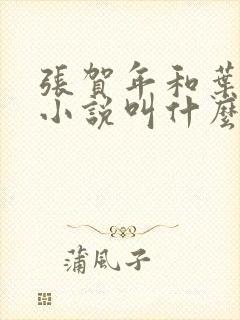 張賀年和葉
小說叫什麼
蒲風子